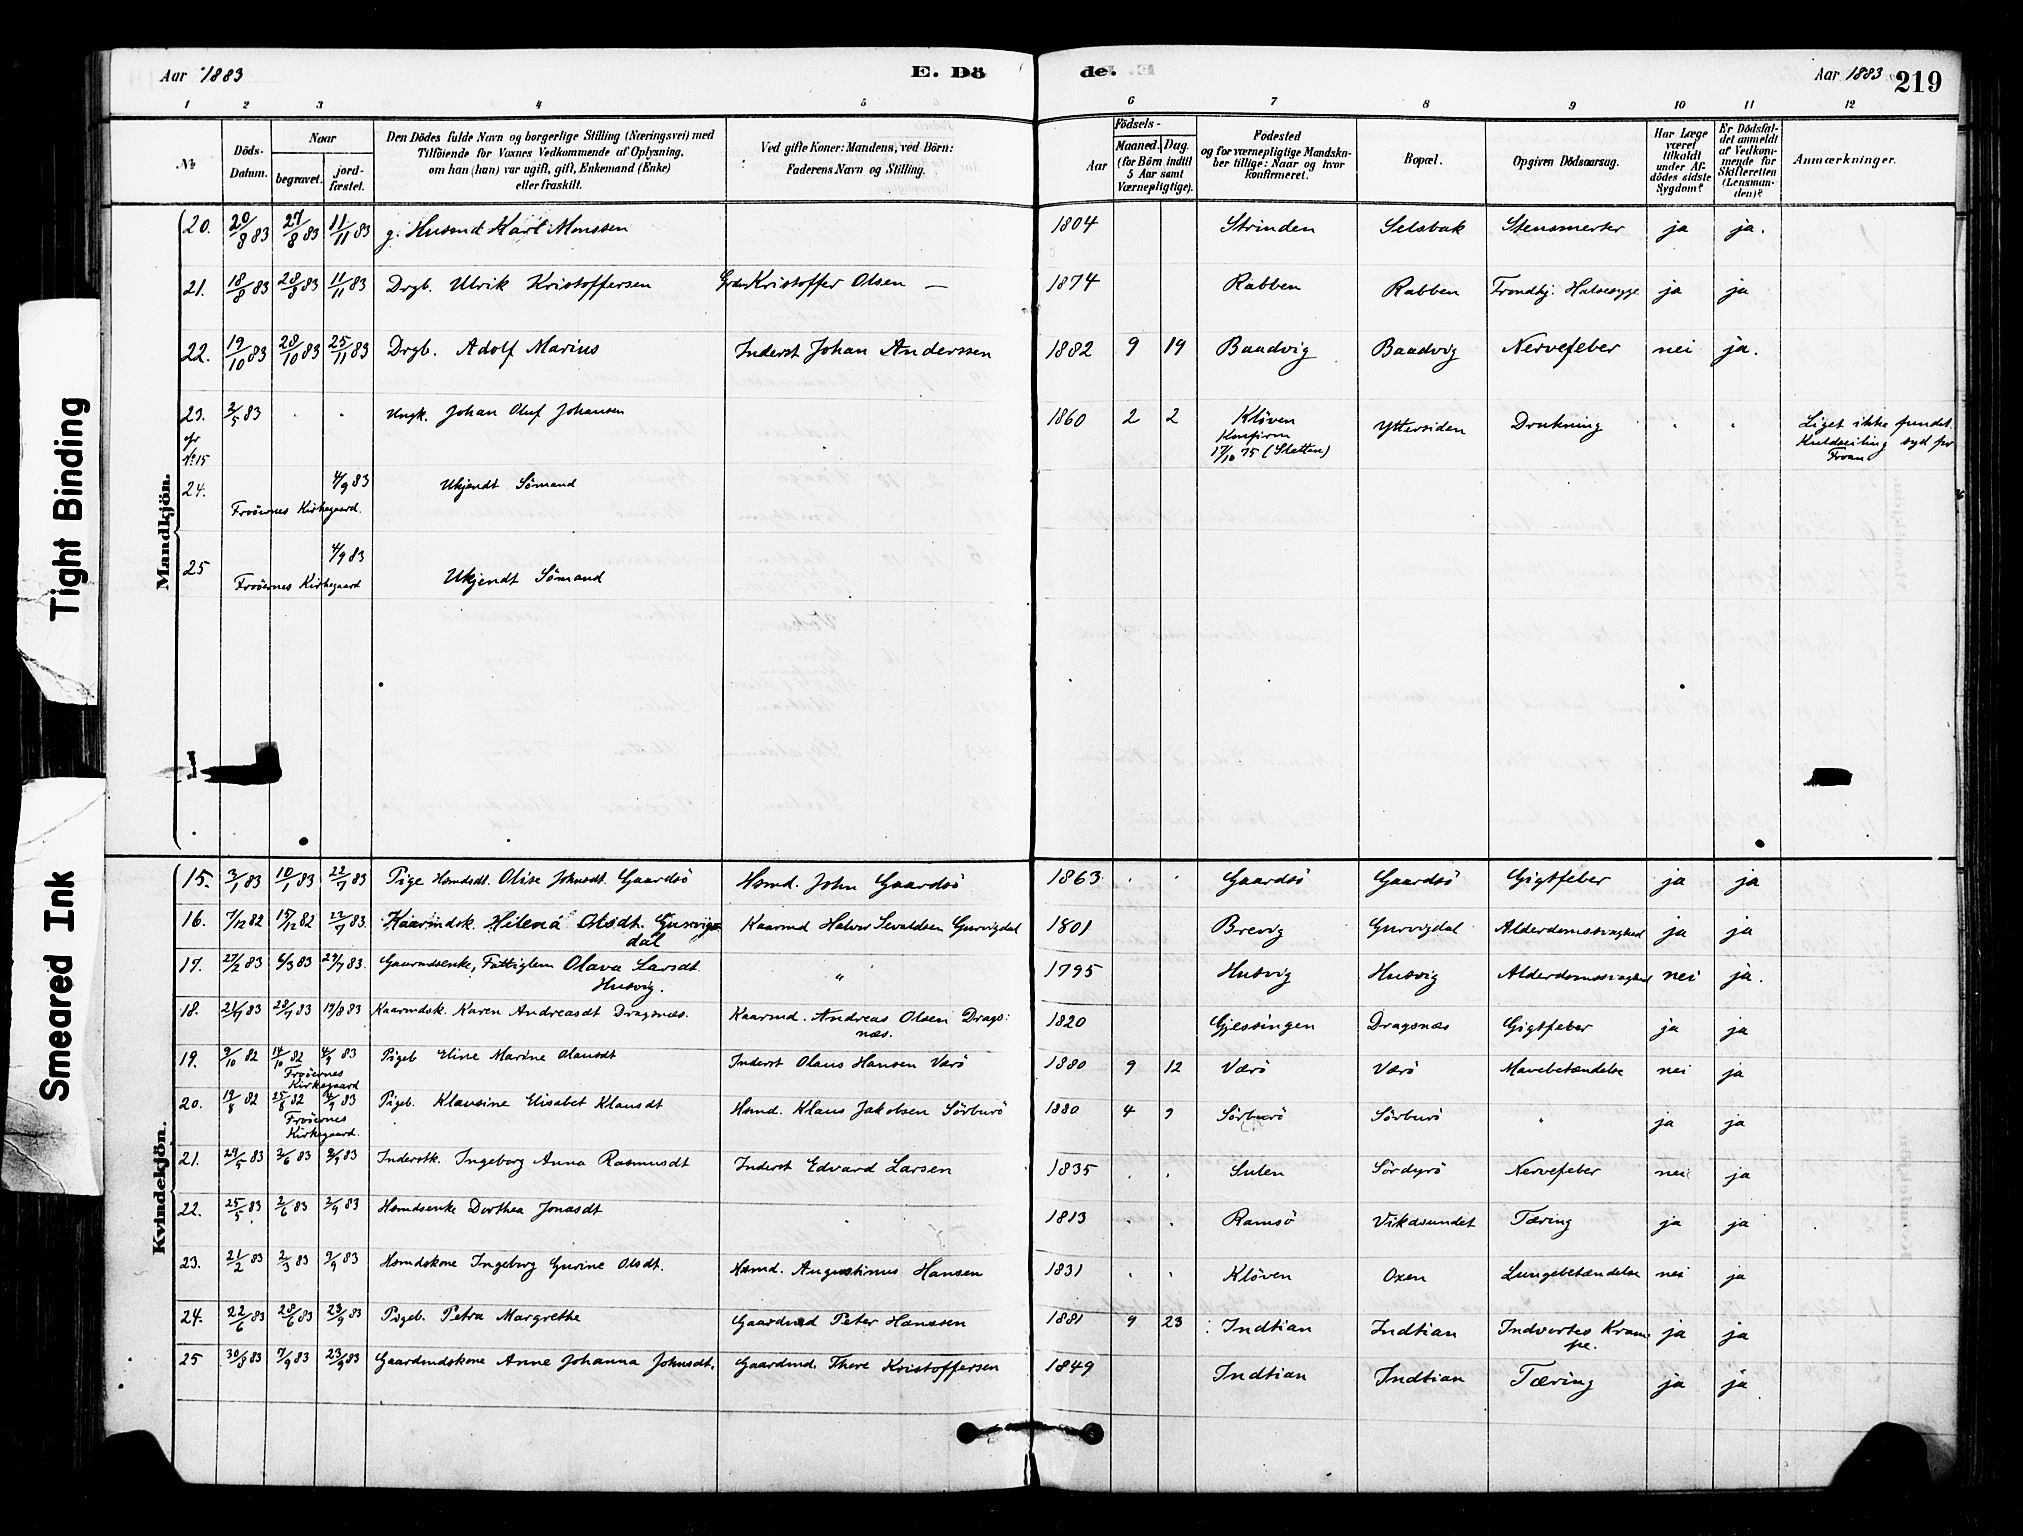 Aar 1883 E. Dö
de. Aar 1883 219
1 2 3 4 5 6 7 8 9 10 11 12
№
Döds-Datum.
Naar
begravet.
jord-fæstet.
Den Dödes fulde Navn og borgerlige Stilling (Næringsvei) med
Tilföiende for Voxnes Vedkommende af Oplysning,
om han (hun) var ugift, gift, Enkemand (Enke)
eller fraskilt.
Ved gifte Koner: Mandens, ved Börn:
Faderens Navn og Stilling.
Födsels-
Aar
Maaned. Dag.
(for Börn indtil
5 Aar samt
Værnepligtige).
Födested
og for værnepligtige Mandska-
ber tillige: Naar og hvor
konfirmeret.
Bopæl.
Opgiven Dödsaarsag.
Har Læge
været
tilkaldt
under Af-
dödes sidste
Sygdom?
Er Dödsfal-
det anmeldt
af Vedkom-
mende for
Skifteretten
(Lensman-
den)?
Anmærkninger.
Mandkjön.
20. 20/8 83 27/8 83 11/11 83 g. Husmd Karl Monssen 1804 Strinden Selsbak Stensmerter ja ja.
21. 18/8 83 28/8 83 11/11 83 Drgb. Ulrik Kristoffersen Grdm Kristoffer Olsen — 1874 Rabben Rabben Trondhj. Halssyge ja ja
22. 19/10 83 28/10 83 25/11 83 Drgb. Adolf Marius Inderst Johan Anderssen 1882 9 19 Baadvig Baadvig Nervefeber nei ja.
23. 2/5 83 . . Ungk. Johan Oluf Johansen 1860 2 2 Klöven Yttersiden Drukning . . Liget ikke fundet.
cfr № 15 Konfirm 17/10 75 (Sletten) Kuldseiling syd for Froan
24. 4/9 83 Ukjendt Sömand
Froöernes Kirkegaard.
25 4/9 83 Ukjendt Sömand
Froöernes Kirkegaard
Kvindekjön.
15. 3/1 83 10/1 83 22/7 83 Pige Hsmdsdt. Olise Johnsdt. Gaardsö Hsmd. John Gaardsö 1863 . . Gaardsö Gaardsö Gigtfeber ja ja
16. 7/12 82 15/12 82 22/7 83. Kaarmdsk. Helena Olsdt. Gurvig-dal Kaarmd Halvor Sevaldsen Gurvigdal 1801 Brevig Gurvigdal Alderdomssvaghed ja ja
17. 27/2 83 6/3 83 29/7 83. Gaarmdsenke, Fattiglem Olava Larsdt. Husvig. " 1795 Husvig Husvig Alderdomssvaghed nei ja.
18. 21/7 83 28/7 83 19/8 83 Kaarmdsk. Karen Andreasdt Dragsnæs. Kaarmd. Andreas Olsen Drags:næs. 1820 Gjessingen Dragsnæs Gigtfeber ja ja
19. 9/10 82 14/10 82 4/9 83 Pigeb Eline Marine Olausdt Inderst Olaus Hansen Værö 1880 9 12 Værö Værö Mavebetændelse nei ja
Froöernes Kirkegaard
20. 19/8 82 25/8 82 4/9 83 Pigeb. Klausine Elisabet Klausdt Hsmd. Klaus Jakobsen Sörburö 1880 4 9 Sörburö Sörburö " ja ja
Froöernes Kirkegaard.
21. 24/5 83 2/6 83 2/9 83 Inderstk. Ingeborg Anna Rasmusdt Inderst Edvard Larsen 1835 . . Sulen Sördyrö Nervefeber nei ja
22. 25/5 83 2/6 83 2/9 83 Hsmdsenke Dorthea Jonasdt 1813 . . Ramsö Vikasundet Tæring ja ja
23. 21/2 83 2/3 83 9/9 83 Hsmdskone Ingeborg Gurine Olsdt. Hsmd. Augustinus Hansen 1831 . . Klöven Oxen Lungebetændelse nei ja
24. 22/6 83 28/6 83 23/9 83 Pigeb. Petra Margrethe Gaardmd Peter Hanssen 1881 9 23 Indtian Indtian Indvortes Kram-pe. ja ja
25 30/8 83 7/9 83 23/9 83 Gaardmdskone Anne Johanna Johnsdt. Gaardmd. There Kristoffersen 1849 Indtian Indtian Tæring ja ja
Tight Binding
Smeared Ink